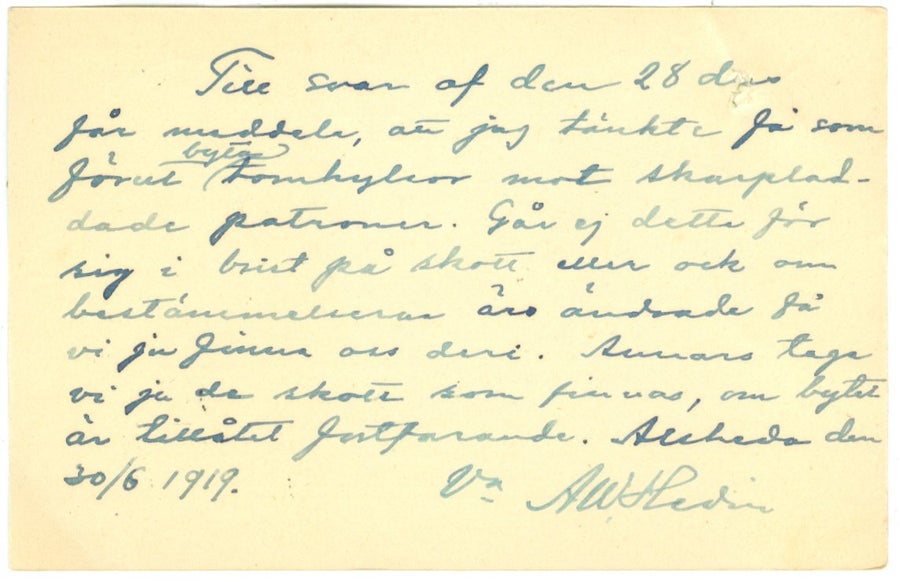 Till svar af den 28 dns
får meddela, att jag tänkte få som
förut bytas tomhylsor mot skarplad-
dade patroner. Går ej detta för
sig i brist på skott eller ock om
bestämmelserna äro ändrade få
vi ju finna oss deri. Annars taga
vi ju de skott som finnas, om bytet
är tillåtet fortfarande. Alsheda den
30/6 1919. Vn AW Hedin